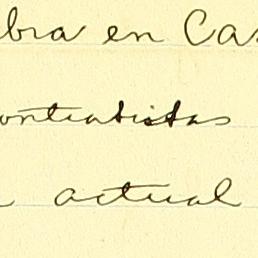 bra en Cas
ontratistas
actual